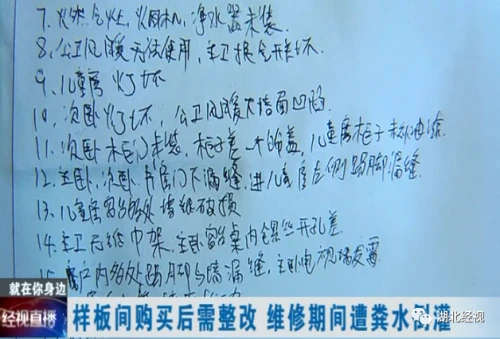 7. 燃气灶，烟机，净水器未装
8. 公卫风暖无法使用，主卫换气开关坏
9. 儿童房灯坏
10. 次卧灯坏，公卫风暖大墙面凹陷
11. 次卧柜门未装，柜子差一个饰盖，儿童房柜子未补油漆
12. 主卧，次卧书房门下漏缝，进儿童房左侧踢脚漏缝
13. 儿童房窗台处墙纸破损
14. 主卫无纸巾架，主卧窗台桌内螺丝开孔差
15. 踢脚与墙漏缝，主卧电视墙发霉
就在你身边
经视直播
样板间购买后需整改 维修期间遭粪水倒灌
湖北经视